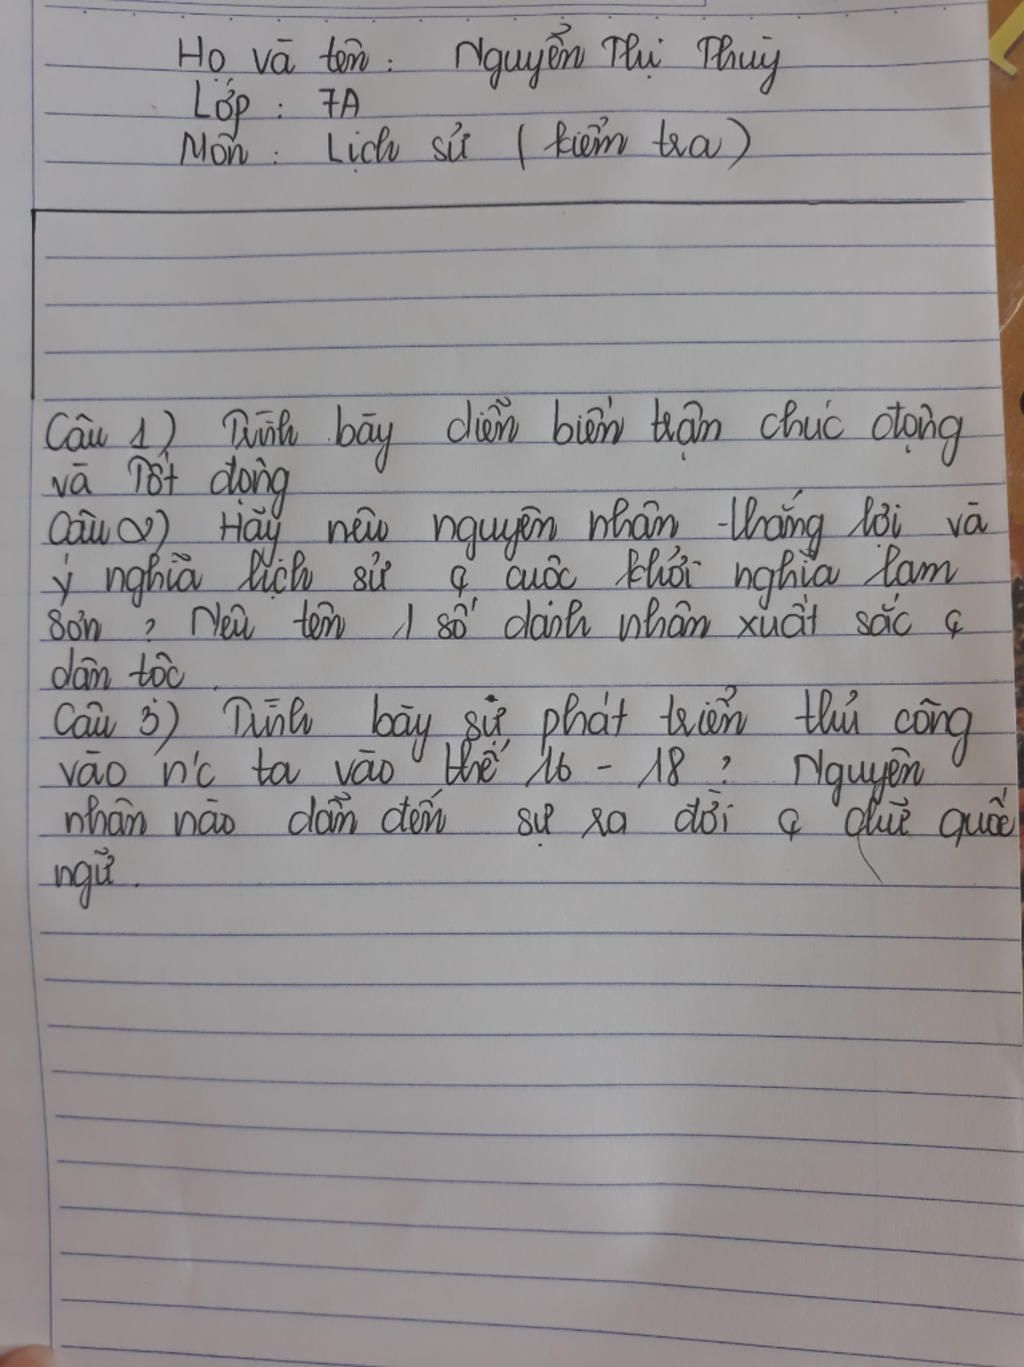 Họ và tên : Nguyễn Thị Thuỳ
Lớp : 7A
Môn : Lịch sử ( kiểm tra )
Câu 1 ) Trình bày diễn biến trận chúc động
và Tốt động
Câu 2 ) Hãy nêu nguyên nhân thắng lợi và
ý nghĩa lịch sử ç cuôc khởi nghĩa lam
Sơn ? Nêu tên 1 số danh nhân xuất sắc ç
dân tôc .
Câu 3 ) Trình bày sự phát triển thủ công
vào n'c ta vào thế 16 - 18 ? Nguyên
nhân nào dẫn đến sự ra đời ç chữ quốc
ngữ .